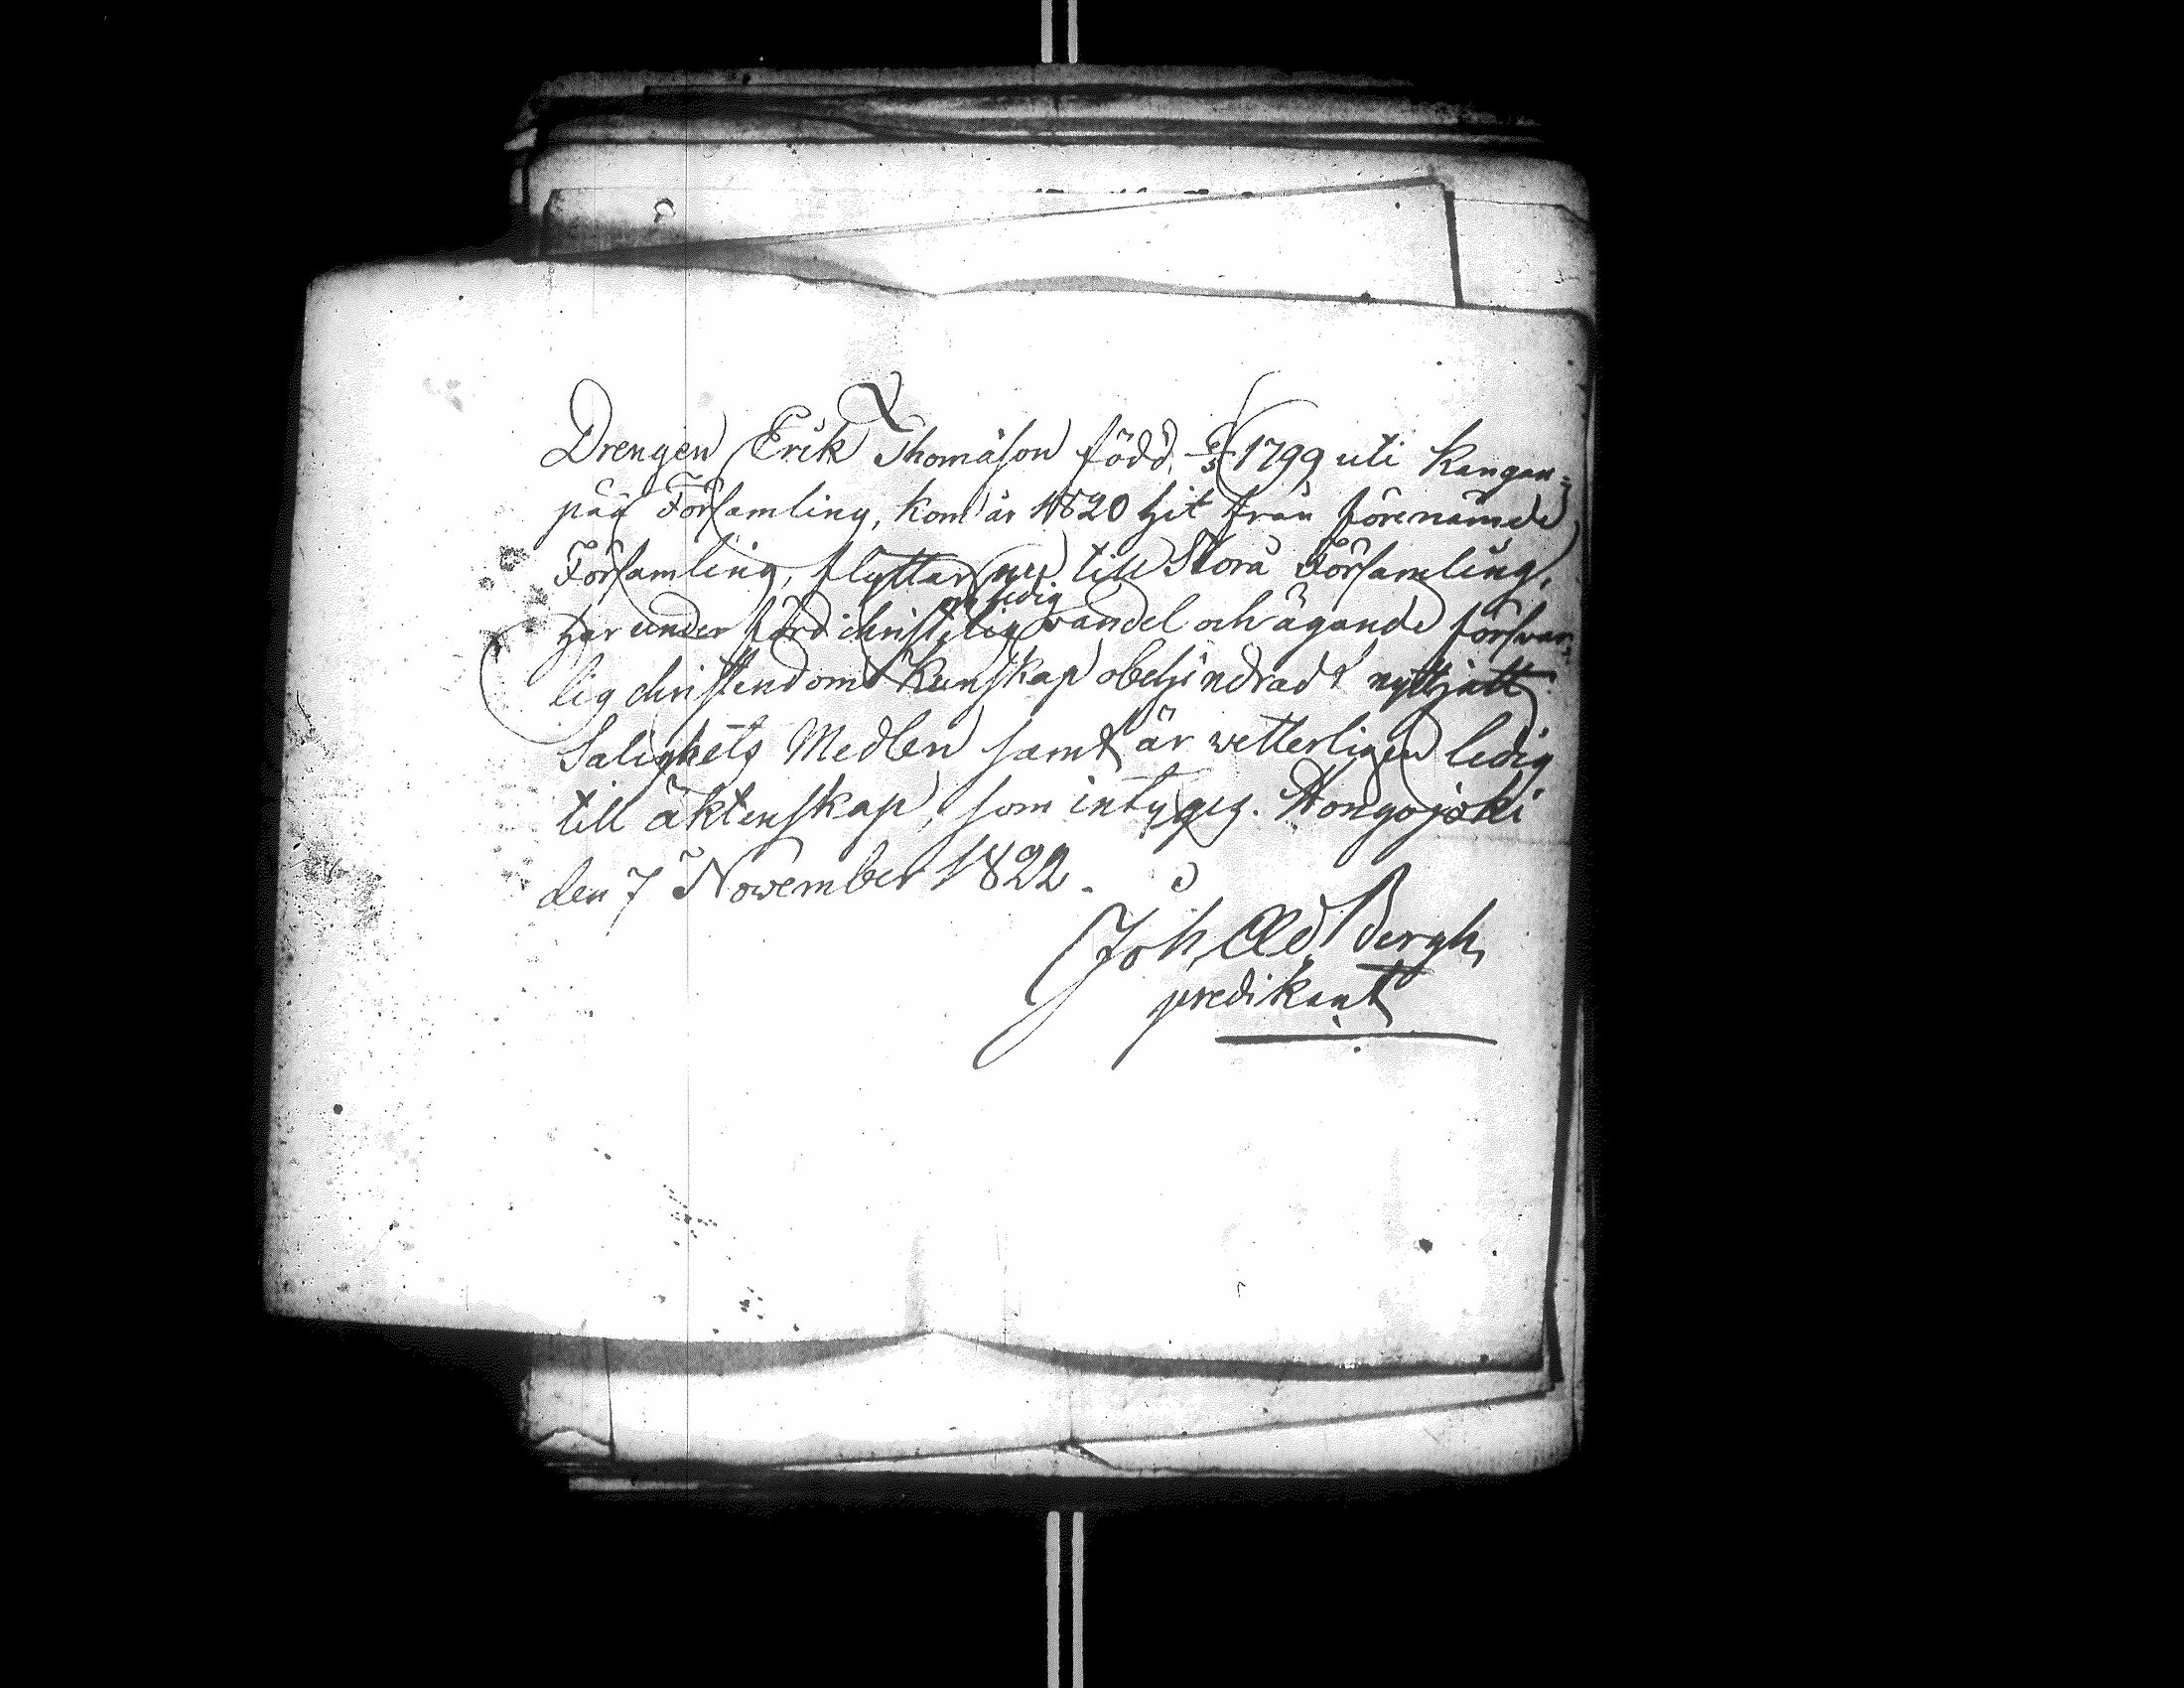 Drengen Erik Thomäson född 1799 uti Kangan=
pää Församling, kom år 1820 hit från förenämde
Församling, flyttar nu till Storå Församling,
har under förd christelig och ledig vandel och ägande försvar=
lig christendoms Kunskap obehindradt nyttjatt
Salighets Medlen samt är wetterligen ledig
till äktenskap, som intyges. Hongojoki
den 7 November 1822.
Joh. Ad. Bergh,
predikant